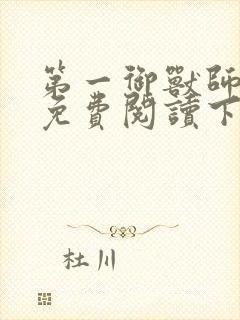 第一御獸師
免費閱讀下
杜川